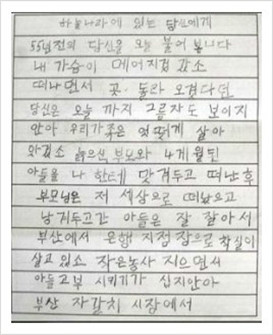 하늘나라에 있는 당신에게
55년전의 당신을 오늘 불어 봅니다
내 가슴이 메어지겠 소
떠나면서 곳 돌라 오겠다던
당신은 오늘 까지 그름자도 보이지
안아 우리가족은 엇떻게 살아
와겠소 늙으신 부모와 4개 월된
아들을 나 한테 맞겨두고 떠난후
부모님은 저 세상으로 떠났으고
남겨두고간 아들은 잘 잘아서
부산에서 은행 지점 장으로 착실이
살고 있소 작은농사 지으면서
아들고부 시키기가 십지안아
부산 자갈치 시장에서